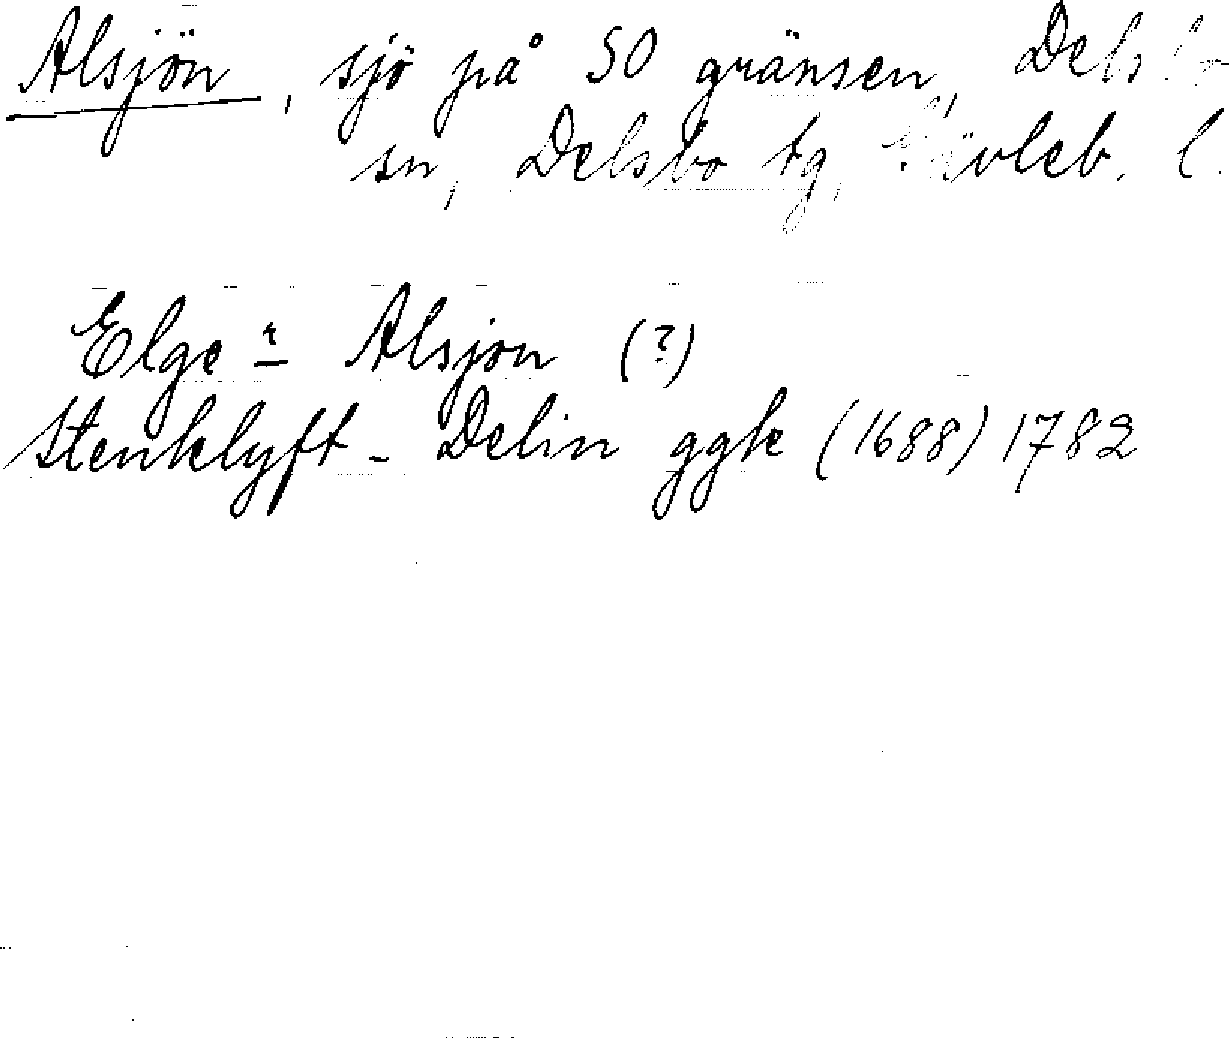 Alsjön, sjö på SO gränsen, Delsbo
sn, Delsbo tg, Gävleb. l.
Elge - Alsjon (?)
Stenklyft - Delin ggk (1688) 1782